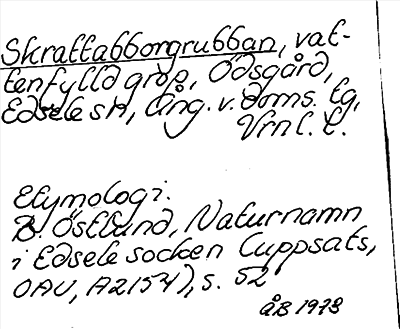 Skrattabborrgrubban, vat-
tenfylld grop, Ödsgård,
Edsele sn, Ång. v. doms. tg,
Vrnl. l.
Etymologi.
B. Östlund, Naturnamn
i Edsele socken (uppsats,
OAU, A2154), s. 52
ÅB 1973